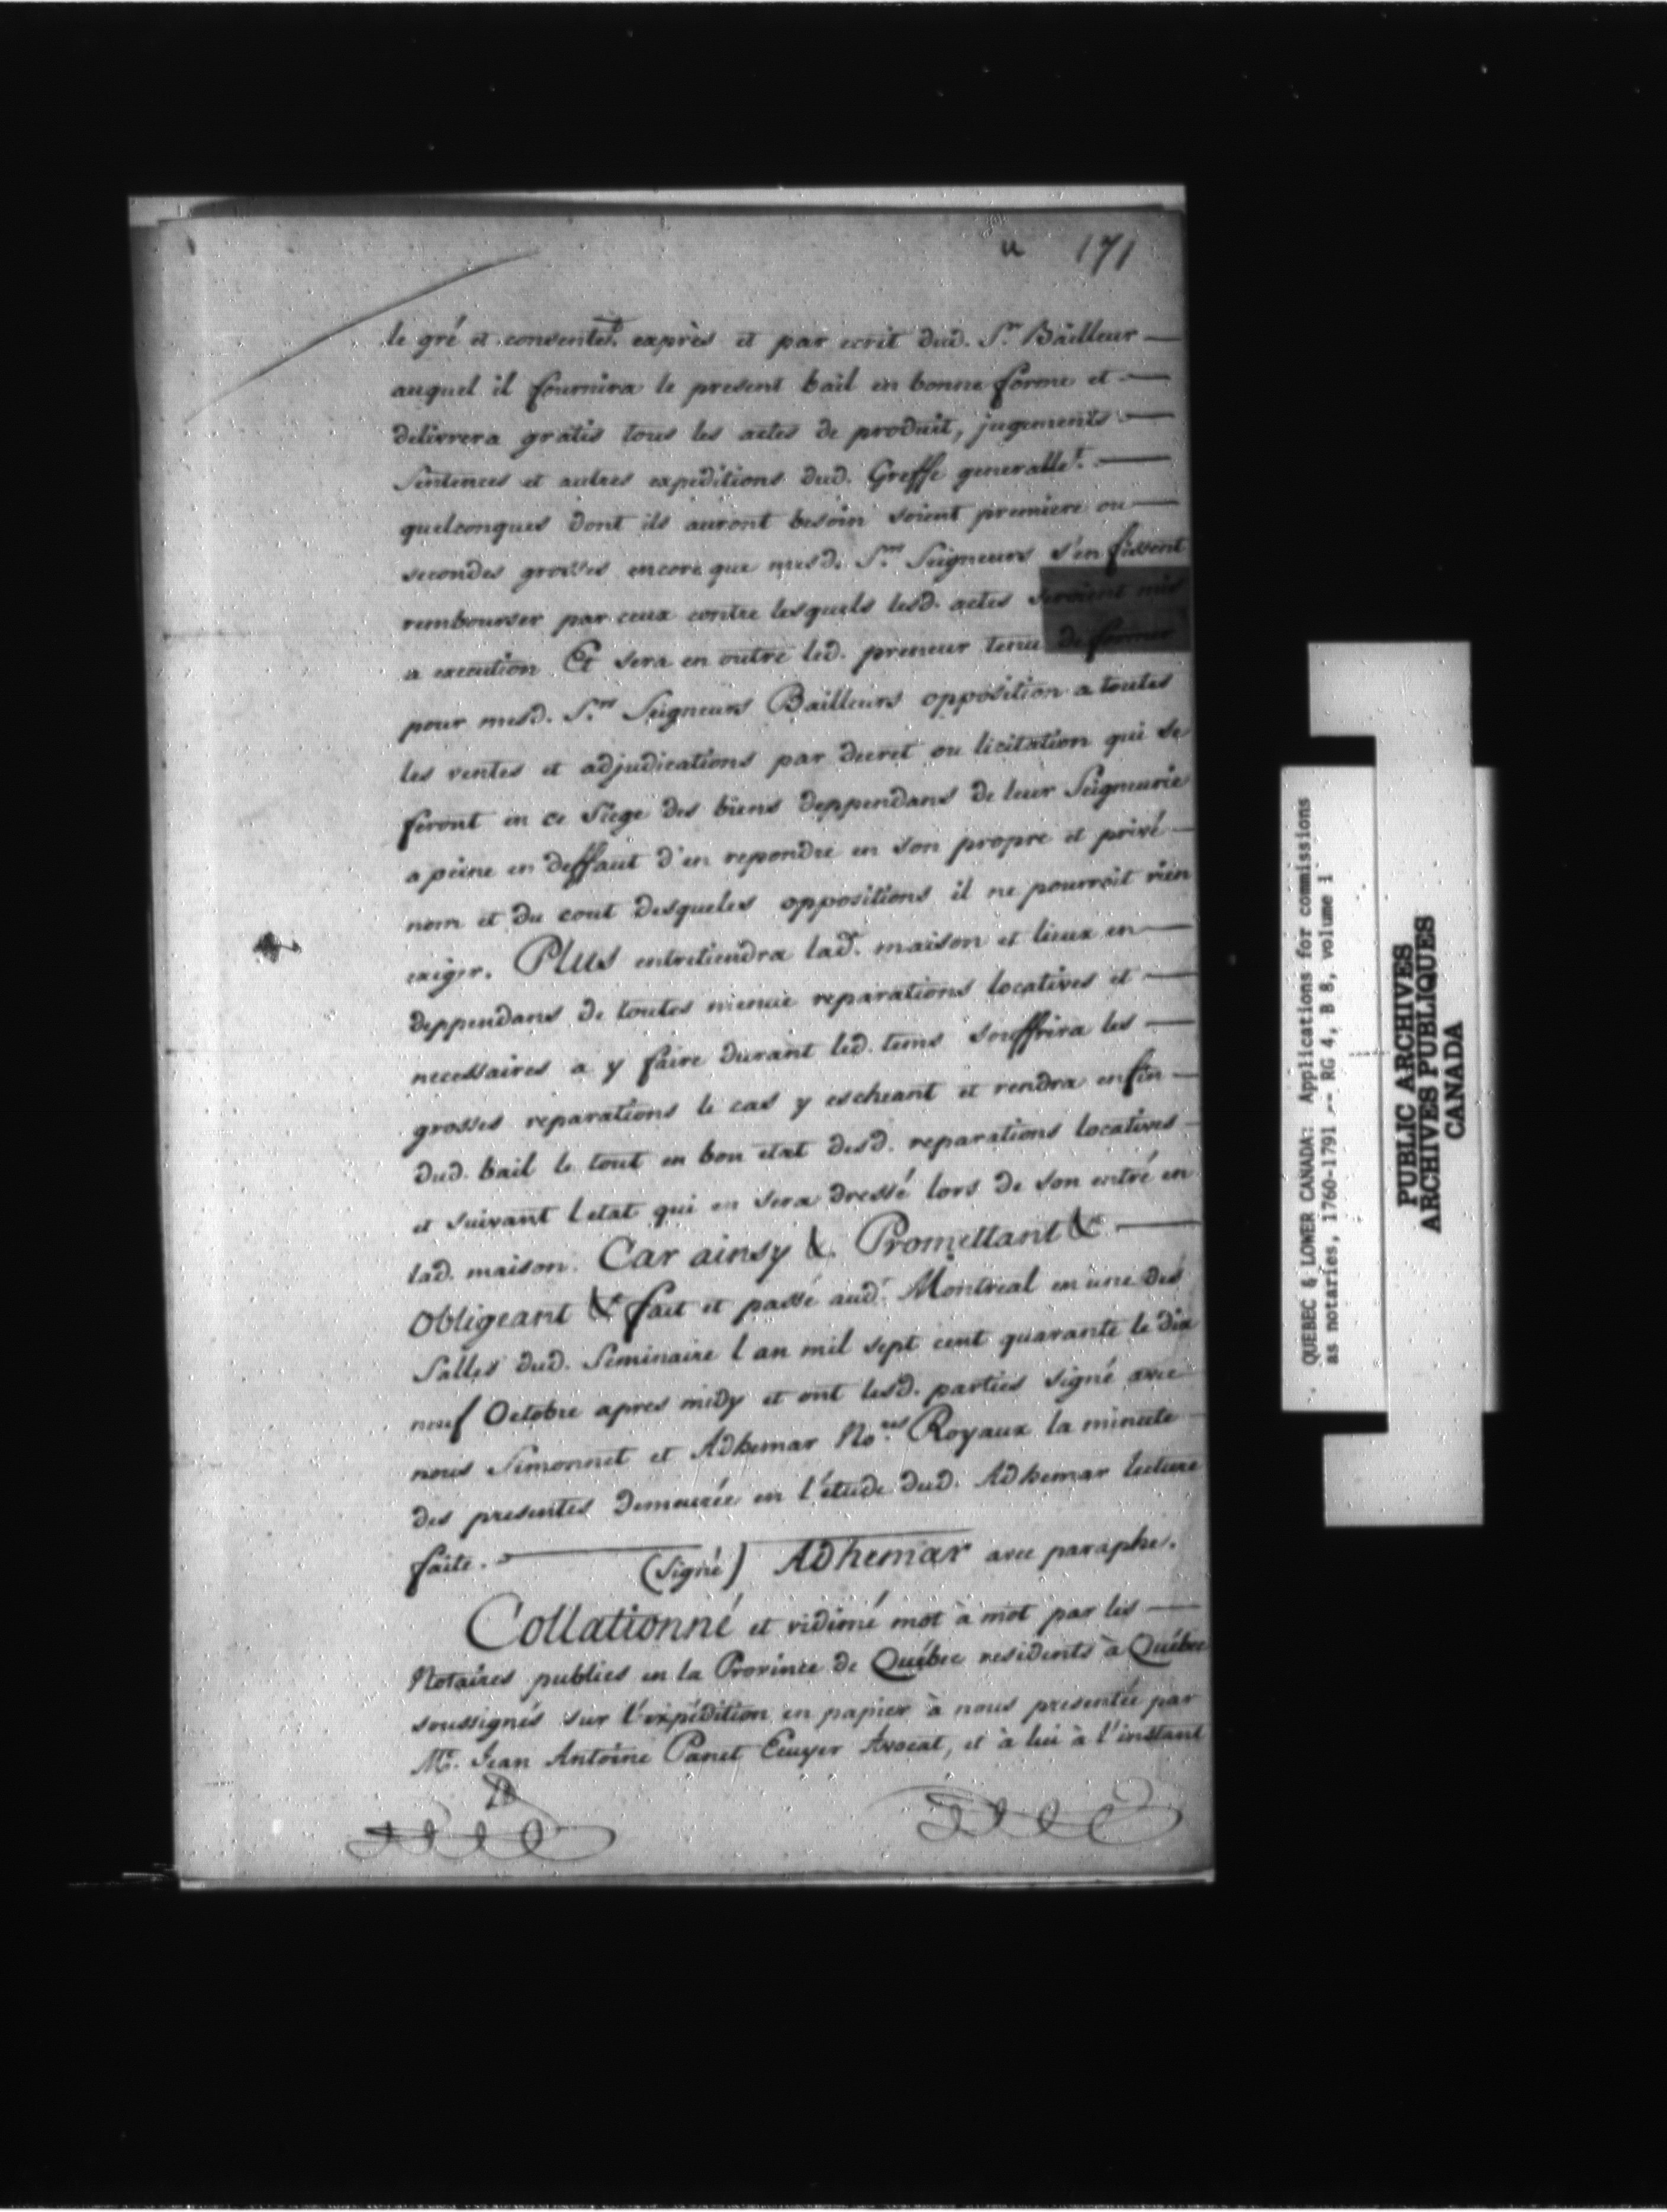 u 171
le gré et consentet. exprès et par ecrit dud. Sr. Bailleur —
auquel il fournira le present bail en bonne forme et —
delivrera gratis tous les actes de produit, jugements —
Sentences et autres expeditions dud. Greffe generallet. —
quelconques dont ils auront besoin soient premiere ou —
secondes grosses encore que mesd. Srs. Seigneurs s'en fissent
rembourser par ceux contre lesquels lesd. actes seroient mis
a execution Et sera en outre led. preneur tenu de former
pour mesd. Srs. Seigneurs Bailleurs opposition a toutes
les ventes et adjudications par decret ou licitation qui se
feront en ce Siege des biens deppendans de leur Seigneurie
a peine en deffaut d'en repondre en son propre et privé —
nom et du cout desqueles oppositions il ne pourroit rien
exiger. Plus entretiendra lad. maison et lieux en —
deppendans de toutes menuë reparations locatives et —
necessaires a y faire durant led. tems souffrira les —
grosses reparations le cas y escheant et rendra enfin —
dud. bail le tout en bon etat desd. reparations locatives —
et suivant l etat qui en sera dressé lors de son entré en
lad. maison. Car ainsy &. Promettant &c —
Obligeant &c fait et passé aud. Montreal en une des
Salles dud. Seminaire l an mil sept cent quarante le dix
neuf Octobre apres midy et ont lesd. parties signé avec
nous Simonnet et Adhemar No.res Royaux la minute
des presentes demeurée en l'étude dud. Adhemar lecture
faite. — (signé) Adhemar avec paraphe.
Collationné et vidimé mot à mot par les —
Notaires publics en la Province de Québec residents à Québec
soussignés sur l'expédition en papier à nous presentée par
Mr. Jean Antoine Panet Ecuyer Avocat, et à lui à l'instant
QUEBEC & LOWER CANADA: Applications for commissions
as notaries, 1760-1791 -- RG 4, B 8, volume 1
PUBLIC ARCHIVES
ARCHIVES PUBLIQUES
CANADA